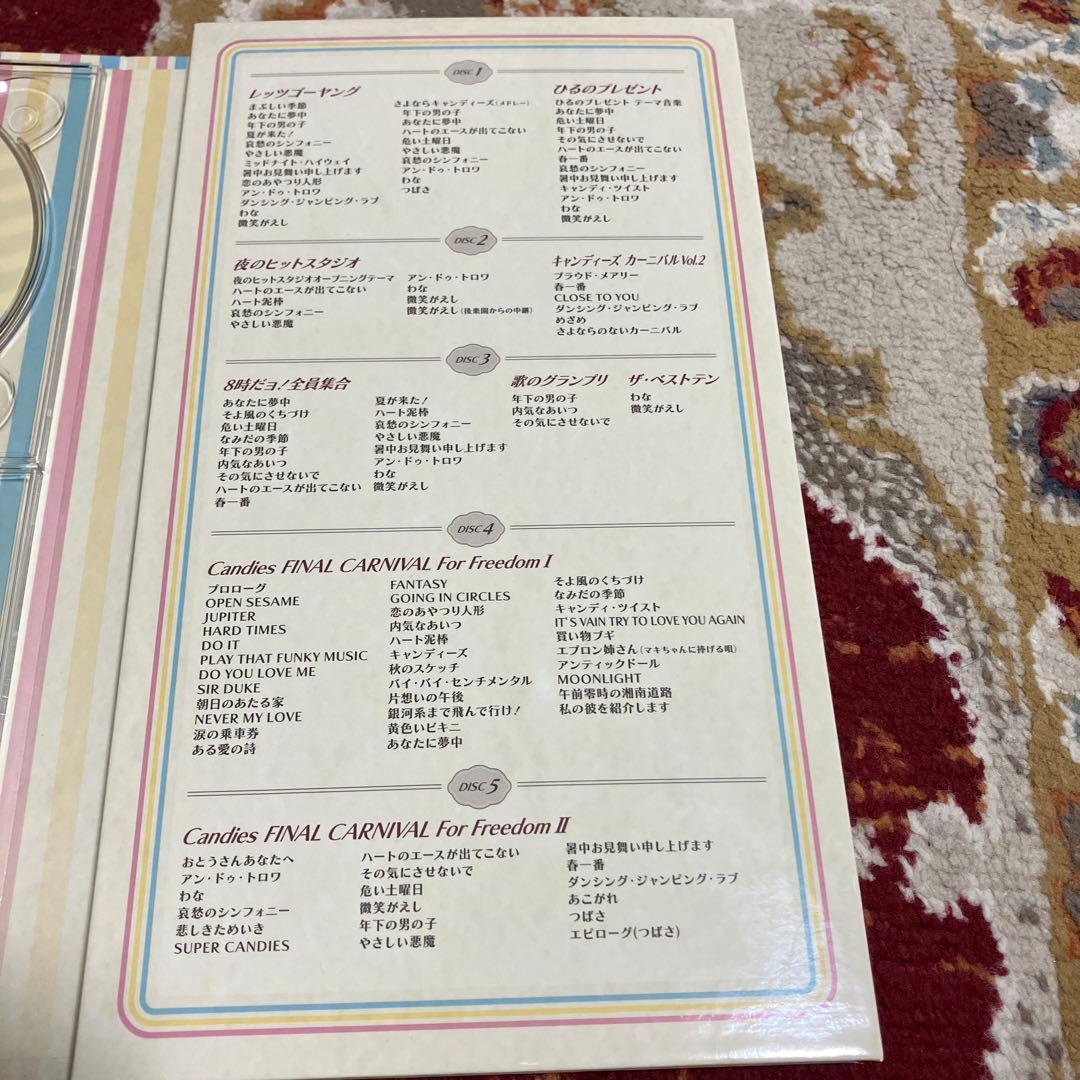 DISC 1
レッツゴーヤング
まぶしい季節
あなたに夢中
年下の男の子
夏が来た!
哀愁のシンフォニー
やさしい悪魔
ミッドナイト・ハイウェイ
暑中お見舞い申し上げます
恋のあやつり人形
アン・ドゥ・トロワ
ダンシング・ジャンピング・ラブ
わな
微笑がえし
さよならキャンディーズ(メドレー)
年下の男の子
あなたに夢中
ハートのエースが出てこない
危い土曜日
やさしい悪魔
哀愁のシンフォニー
アン・ドゥ・トロワ
わな
つばさ
ひるのプレゼント
ひるのプレゼント テーマ音楽
あなたに夢中
危い土曜日
年下の男の子
その気にさせないで
ハートのエースが出てこない
春一番
哀愁のシンフォニー
暑中お見舞い申し上げます
キャンディ・ツイスト
アン・ドゥ・トロワ
わな
微笑がえし
DISC 2
夜のヒットスタジオ
夜のヒットスタジオオープニングテーマ
ハートのエースが出てこない
ハート泥棒
哀愁のシンフォニー
やさしい悪魔
アン・ドゥ・トロワ
わな
微笑がえし
微笑がえし(後楽園からの中継)
キャンディーズ カーニバル Vol.2
プラウド・メアリー
春一番
CLOSE TO YOU
ダンシング・ジャンピング・ラブ
めざめ
さよならのないカーニバル
DISC 3
8時だョ!全員集合
あなたに夢中
そよ風のくちづけ
危い土曜日
なみだの季節
年下の男の子
内気なあいつ
その気にさせないで
ハートのエースが出てこない
春一番
夏が来た!
ハート泥棒
哀愁のシンフォニー
やさしい悪魔
暑中お見舞い申し上げます
アン・ドゥ・トロワ
わな
微笑がえし
歌のグランプリ
年下の男の子
内気なあいつ
その気にさせないで
ザ・ベストテン
わな
微笑がえし
DISC 4
Candies FINAL CARNIVAL For Freedom I
プロローグ
OPEN SESAME
JUPITER
HARD TIMES
DO IT
PLAY THAT FUNKY MUSIC
DO YOU LOVE ME
SIR DUKE
朝日のあたる家
NEVER MY LOVE
涙の乗車券
ある愛の詩
FANTASY
GOING IN CIRCLES
恋のあやつり人形
内気なあいつ
ハート泥棒
キャンディーズ
秋のスケッチ
バイ・バイ・センチメンタル
片想いの午後
銀河系まで飛んで行け!
黄色いビキニ
あなたに夢中
そよ風のくちづけ
なみだの季節
キャンディ・ツイスト
IT'S VAIN TRY TO LOVE YOU AGAIN
買い物ブギ
エプロン姉さん(マキちゃんに捧げる唄)
アンティックドール
MOONLIGHT
午前零時の湘南道路
私の彼を紹介します
DISC 5
Candies FINAL CARNIVAL For Freedom II
おとうさんあなたへ
アン・ドゥ・トロワ
わな
哀愁のシンフォニー
悲しきためいき
SUPER CANDIES
ハートのエースが出てこない
その気にさせないで
危い土曜日
微笑がえし
年下の男の子
やさしい悪魔
暑中お見舞い申し上げます
春一番
ダンシング・ジャンピング・ラブ
あこがれ
つばさ
エピローグ(つばさ)